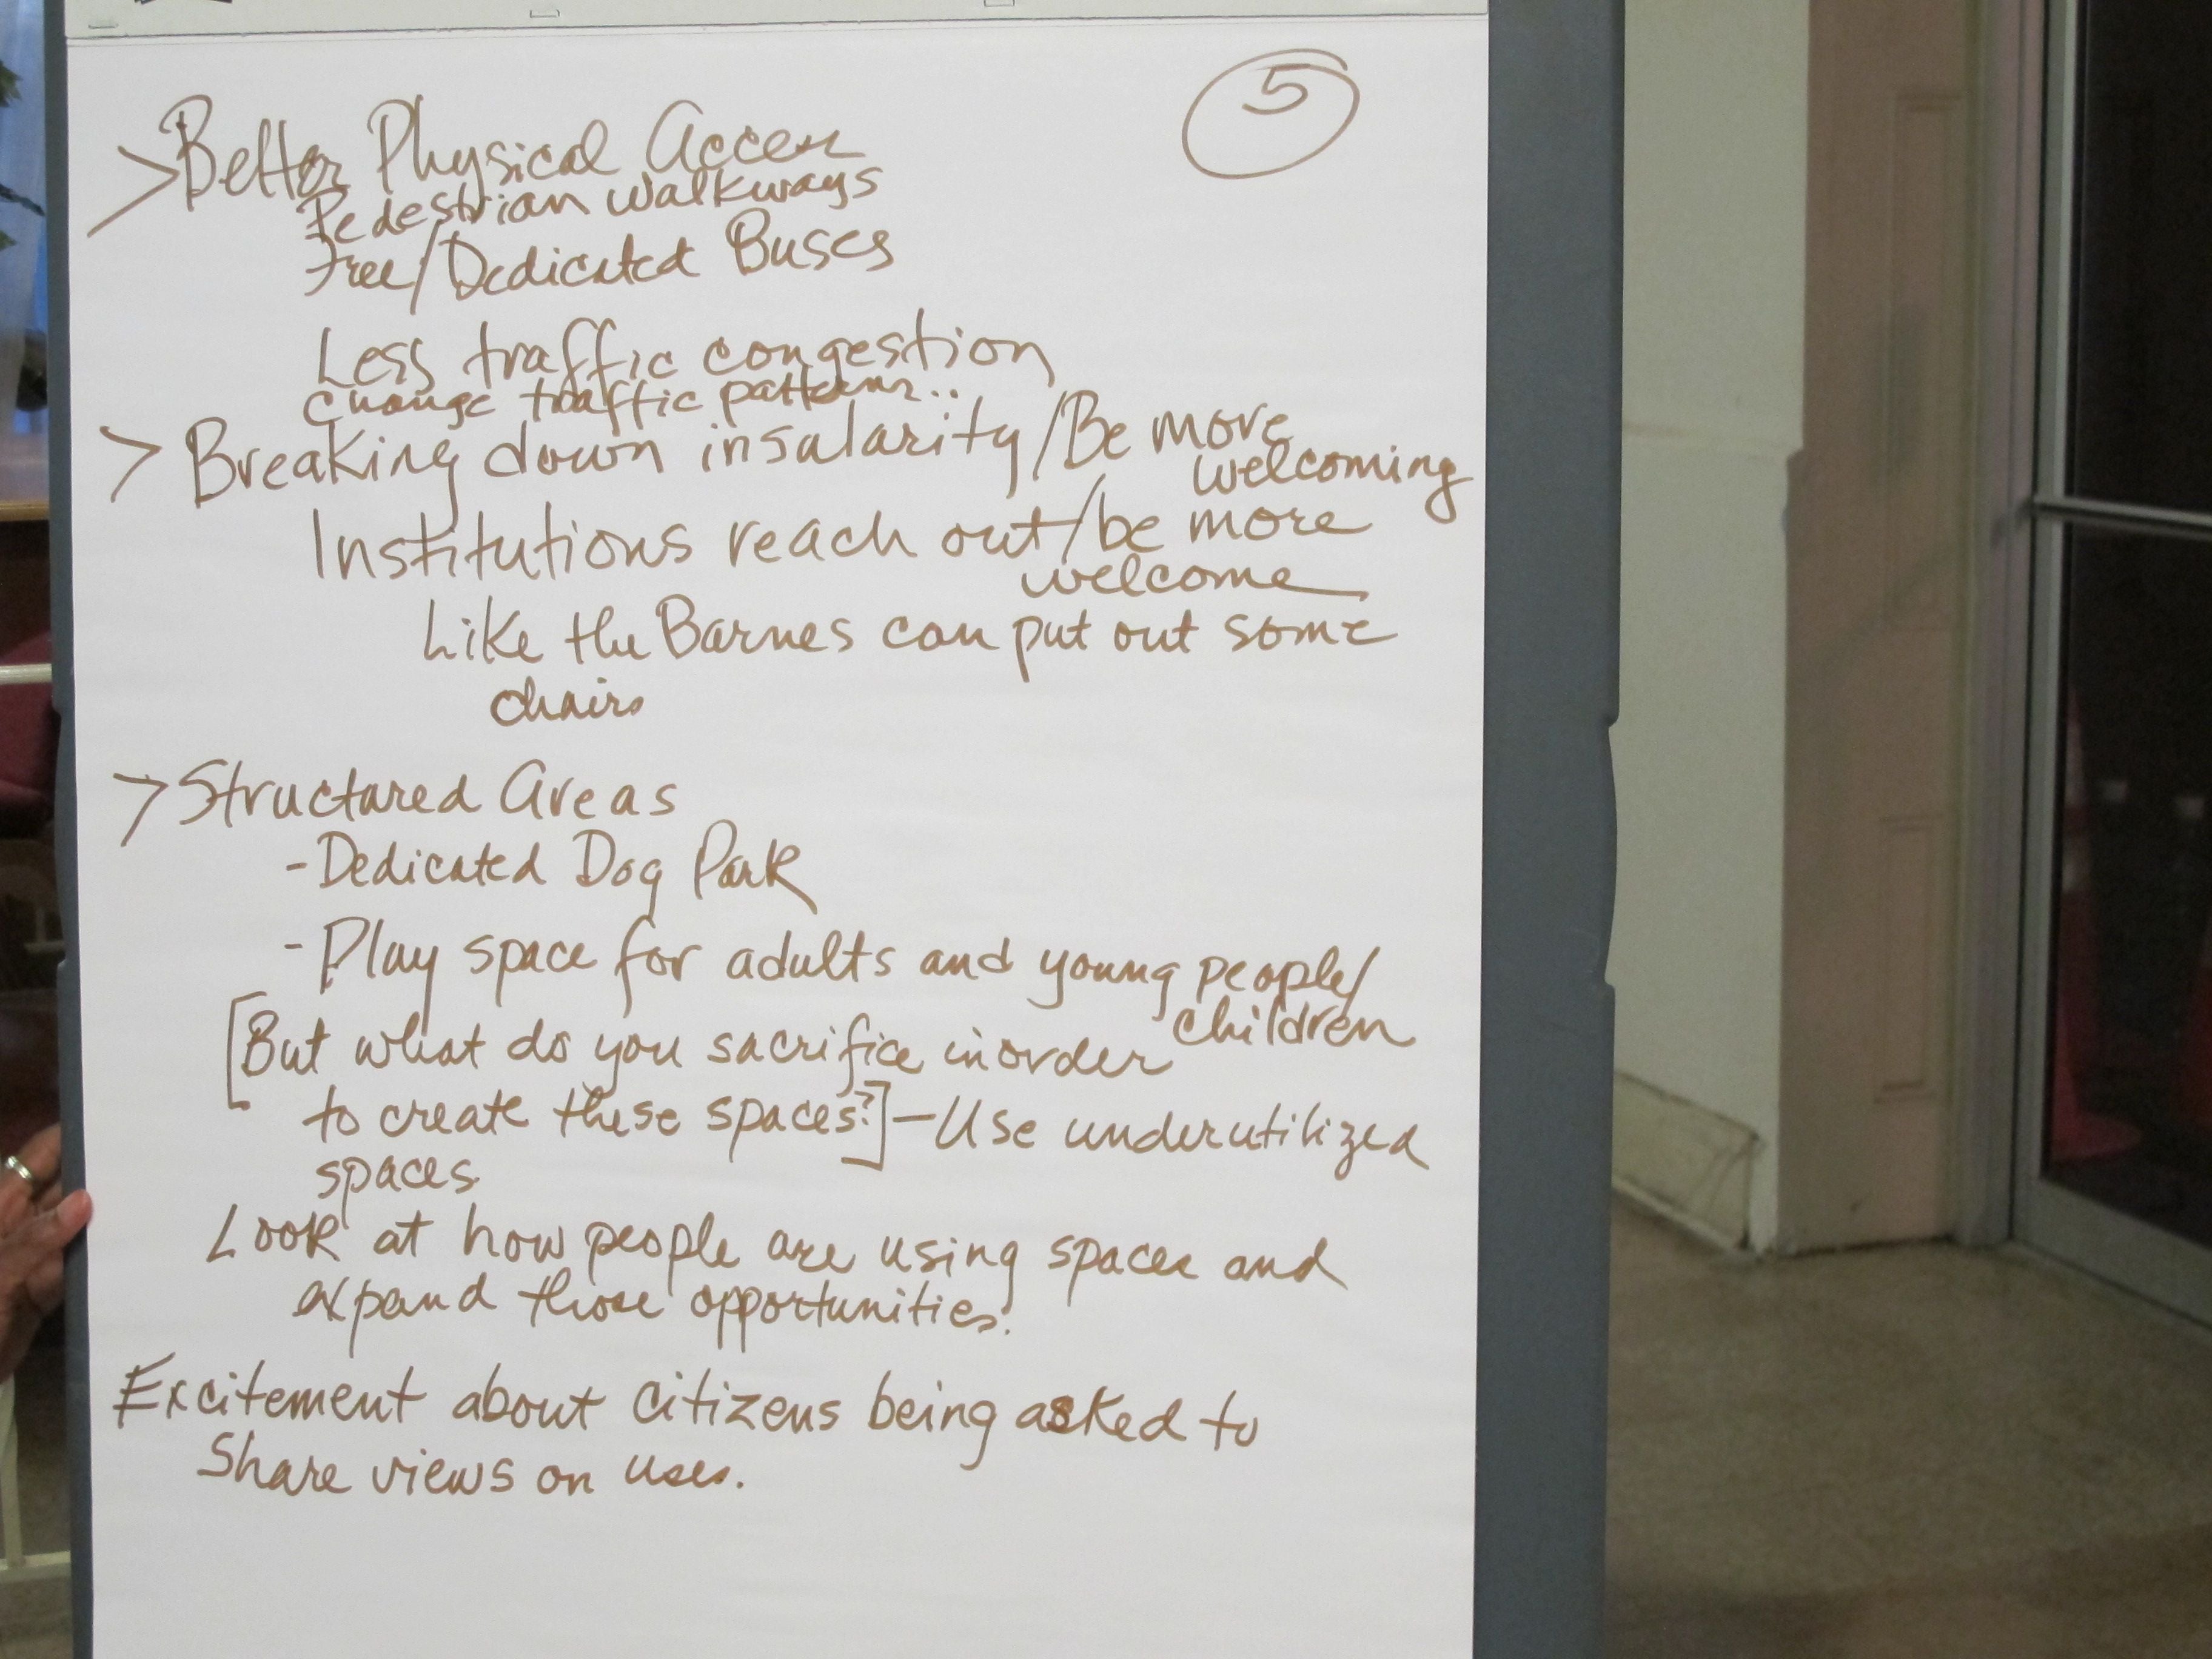 5
> Better Physical Access
Pedestrian walkways
Free/Dedicated Buses
Less traffic congestion
Change traffic patterns..
> Breaking down insalarity/Be more
welcoming
Institutions reach out/be more
welcome
Like the Barnes can put out some
chairs
> Structured Areas
- Dedicated Dog Park
- Play space for adults and young people/
children
[But what do you sacrifice in order
to create these spaces?] - Use underutilized
spaces.
Look at how people are using spaces and
expand those opportunities.
Excitement about citizens being asked to
Share views on uses.